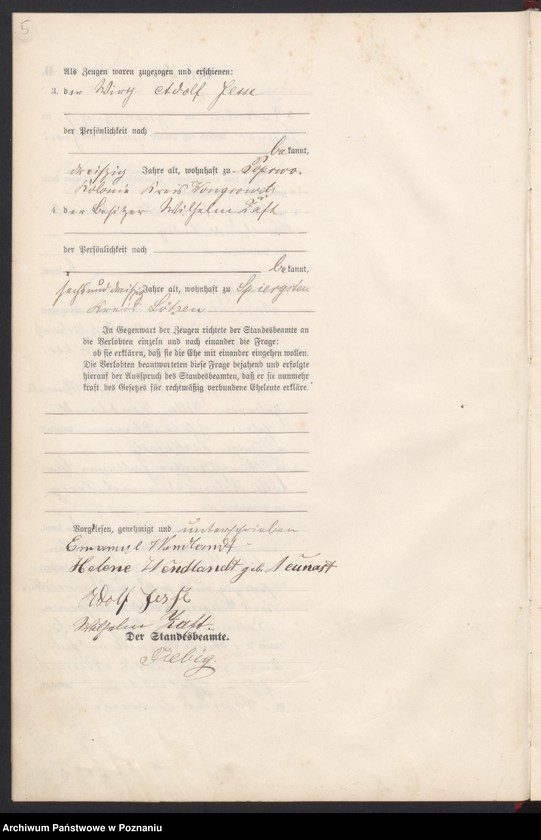 5
Als Zeugen waren zugezogen und erschienen:
3. der Wirth Adolf Jesse
der Persönlichkeit nach
bekannt,
dreißig Jahre alt, wohnhaft zu Popowo-
Kolonie Kreis Wongrowitz
4. der Besitzer Wilhelm
der Persönlichkeit nach
bekannt,
sechsunddreißig Jahre alt, wohnhaft zu Spiergsten
Kreis Lötzen
In Gegenwart der Zeugen richtete der Standesbeamte an
die Verlobten einzeln und nach einander die Frage:
ob sie erklären, daß sie die Ehe mit einander eingehen wollen.
Die Verlobten beantworteten diese Frage bejahend und erfolgte
hierauf der Ausspruch des Standesbeamten, daß er sie nunmehr
kraft des Gesetzes für rechtmäßig verbundene Eheleute erkläre.
Vorgelesen, genehmigt und unterschrieben
Emanuel Wendlandt
Helene Wendlandt geb.
Adolf
Wilhelm
Der Standesbeamte.
Fiebig.
Archiwum Państwowe w Poznaniu